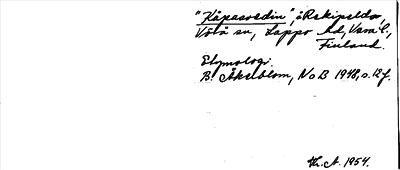 "Kåpasvedin",
Vötö sn, Lappo hd, Vasa l.,
Finland.
Etymologi.
B. Åkerblom, NoB 1948, s. 12 f.
1954.